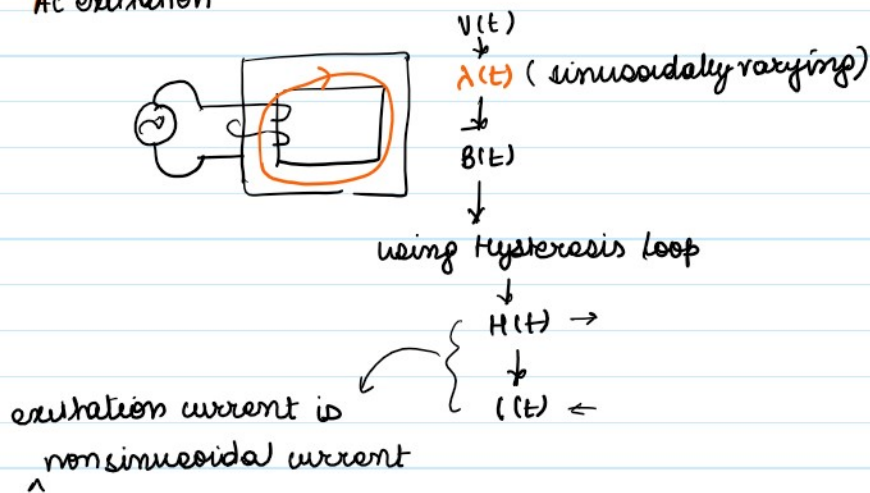 AC excitation
V(t)
λ(t) (sinusoidally varying)
B(t)
using Hysteresis loop
H(t) →
i(t) ←
exitation current is
^ nonsinusoidal current